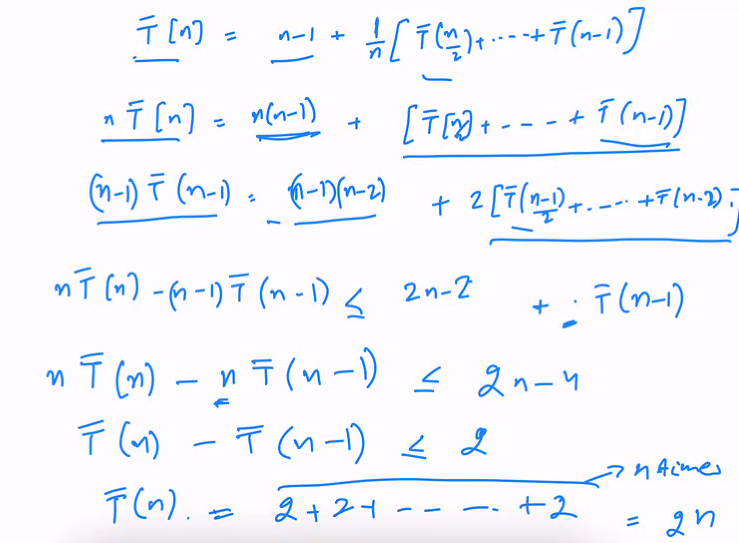 T̄[n] = n-1 + 1/n [T̄(n/2)+----+T̄(n-1)]
n T̄[n] = n(n-1) + [T̄[n/2]+----+ T̄(n-1)]
(n-1) T̄(n-1) = (n-1)(n-2) + 2[T̄(n-1)/2+----+T̄(n-2)]
nT̄(n) -(n-1)T̄(n-1) ≤ 2n-2 + T̄(n-1)
n T̄(n) - n T̄(n-1) ≤ 2n-4
T̄(n) - T̄(n-1) ≤ 2
→ n times
T̄(n). = 2+2+-----+2 = 2n